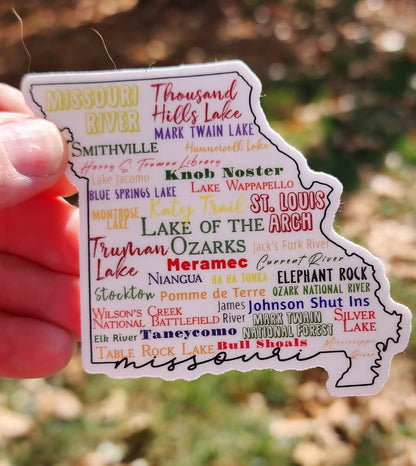 MISSOURI
RIVER
Thousand
Hills Lake
MARK TWAIN LAKE
SMITHVILLE
Hunnewell Lake
Harry S Truman Library
Knob Noster
Lake Jacomo
LAKE WAPPAPELLO
BLUE SPRINGS LAKE
MONTROSE
LAKE
Katy Trail
ST. LOUIS
ARCH
LAKE OF THE
OZARKS
Truman
Lake
Jack's Fork River
Current River
Meramec
NIANGUA
HA HA TONKA
ELEPHANT ROCK
Stockton
Pomme de Terre
OZARK NATIONAL RIVER
WILSON'S CREEK
NATIONAL BATTLEFIELD
James
River
Johnson Shut Ins
MARK TWAIN
NATIONAL FOREST
SILVER
LAKE
Elk River
Taneycomo
TABLE ROCK LAKE
Bull Shoals
Mississippi
River
missouri